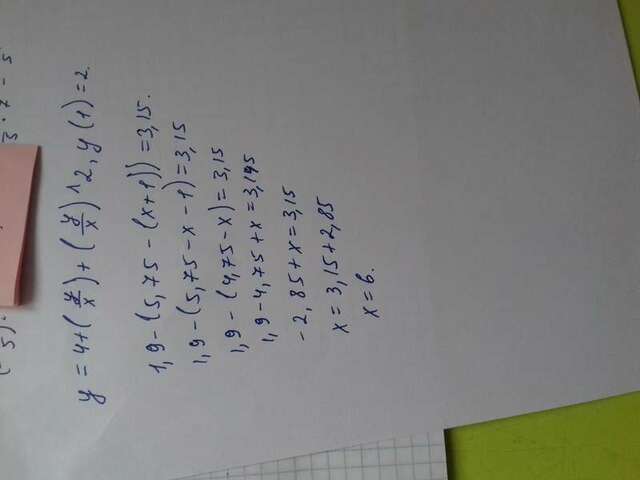 5). 3 · 7 - 5
y = 4+(y/x)+(y/x)^2, y(1)=2.
1,9-(5,75-(x+1))=3,15.
1,9-(5,75-x-1)=3,15
1,9-(4,75-x)=3,15
1,9-4,75+x=3,15
-2,85+x=3,15
x=3,15+2,85
x=6.